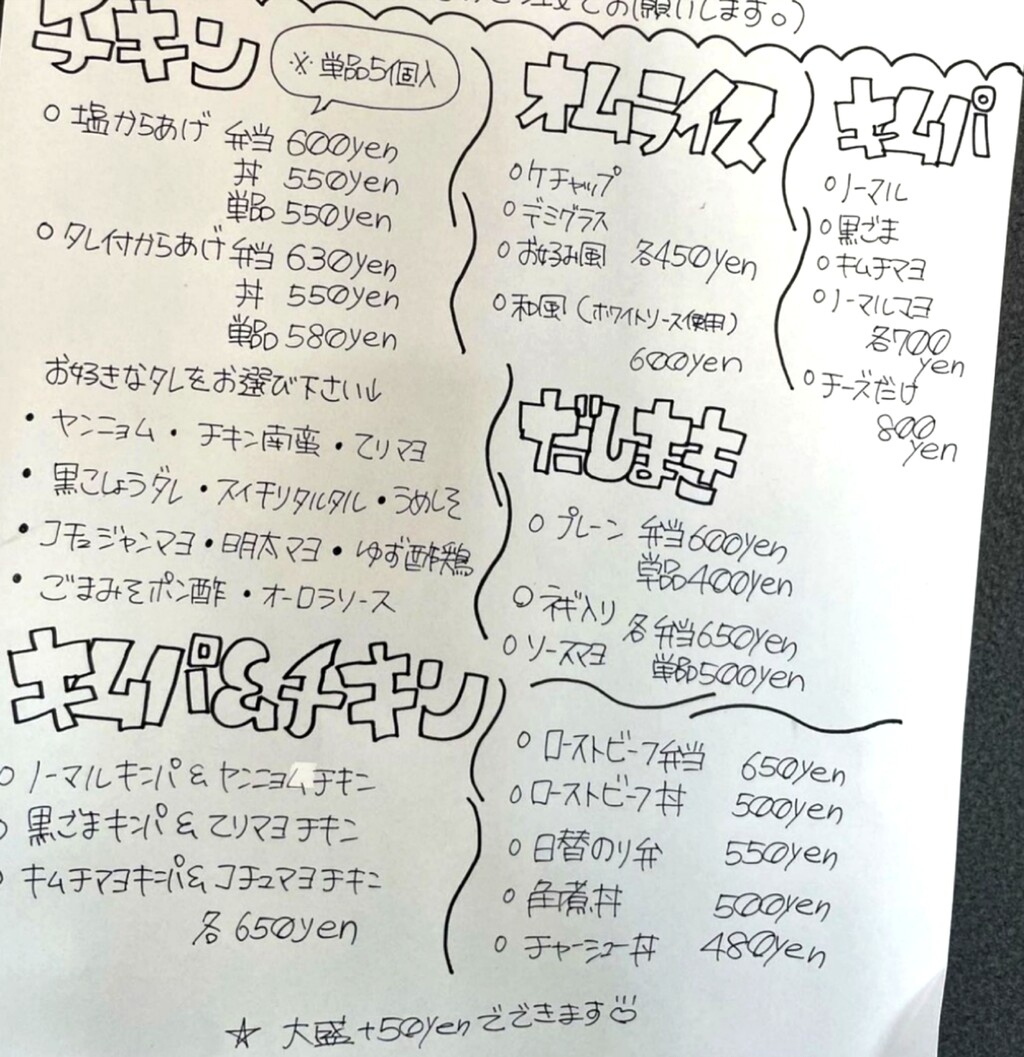 お願いします。)
チキン
※単品5個入
○塩からあげ 弁当 600yen
丼 550yen
単品 550yen
○タレ付からあげ 弁当 630yen
丼 550yen
単品 580yen
お好きなタレをお選び下さい↓
・ヤンニョム・チキン南蛮・てりマヨ
・黒こしょうダレ・スイチリタルタル・うめしそ
・コチュジャンマヨ・明太マヨ・ゆず酢鶏
・ごまみそポン酢・オーロラソース
キムパ&チキン
○ノーマルキンパ&ヤンニョムチキン
○黒ごまキンパ&てりマヨチキン
○キムチマヨキンパ&コチュマヨチキン
各650yen
オムライス
○ケチャップ
○デミグラス
○お好み風 各450yen
○和風(ホワイトソース使用)
600yen
キムパ
○ノーマル
○黒ごま
○キムチマヨ
○ノーマルマヨ
各700
yen
○チーズだけ
800
yen
だしまき
○プレーン 弁当600yen
単品400yen
○ネギ入り
○ソースマヨ 各 弁当650yen
単品500yen
○ローストビーフ弁当 650yen
○ローストビーフ丼 500yen
○日替のり弁 550yen
○角煮丼 500yen
○チャーシュー丼 480yen
☆大盛+50yenでできます